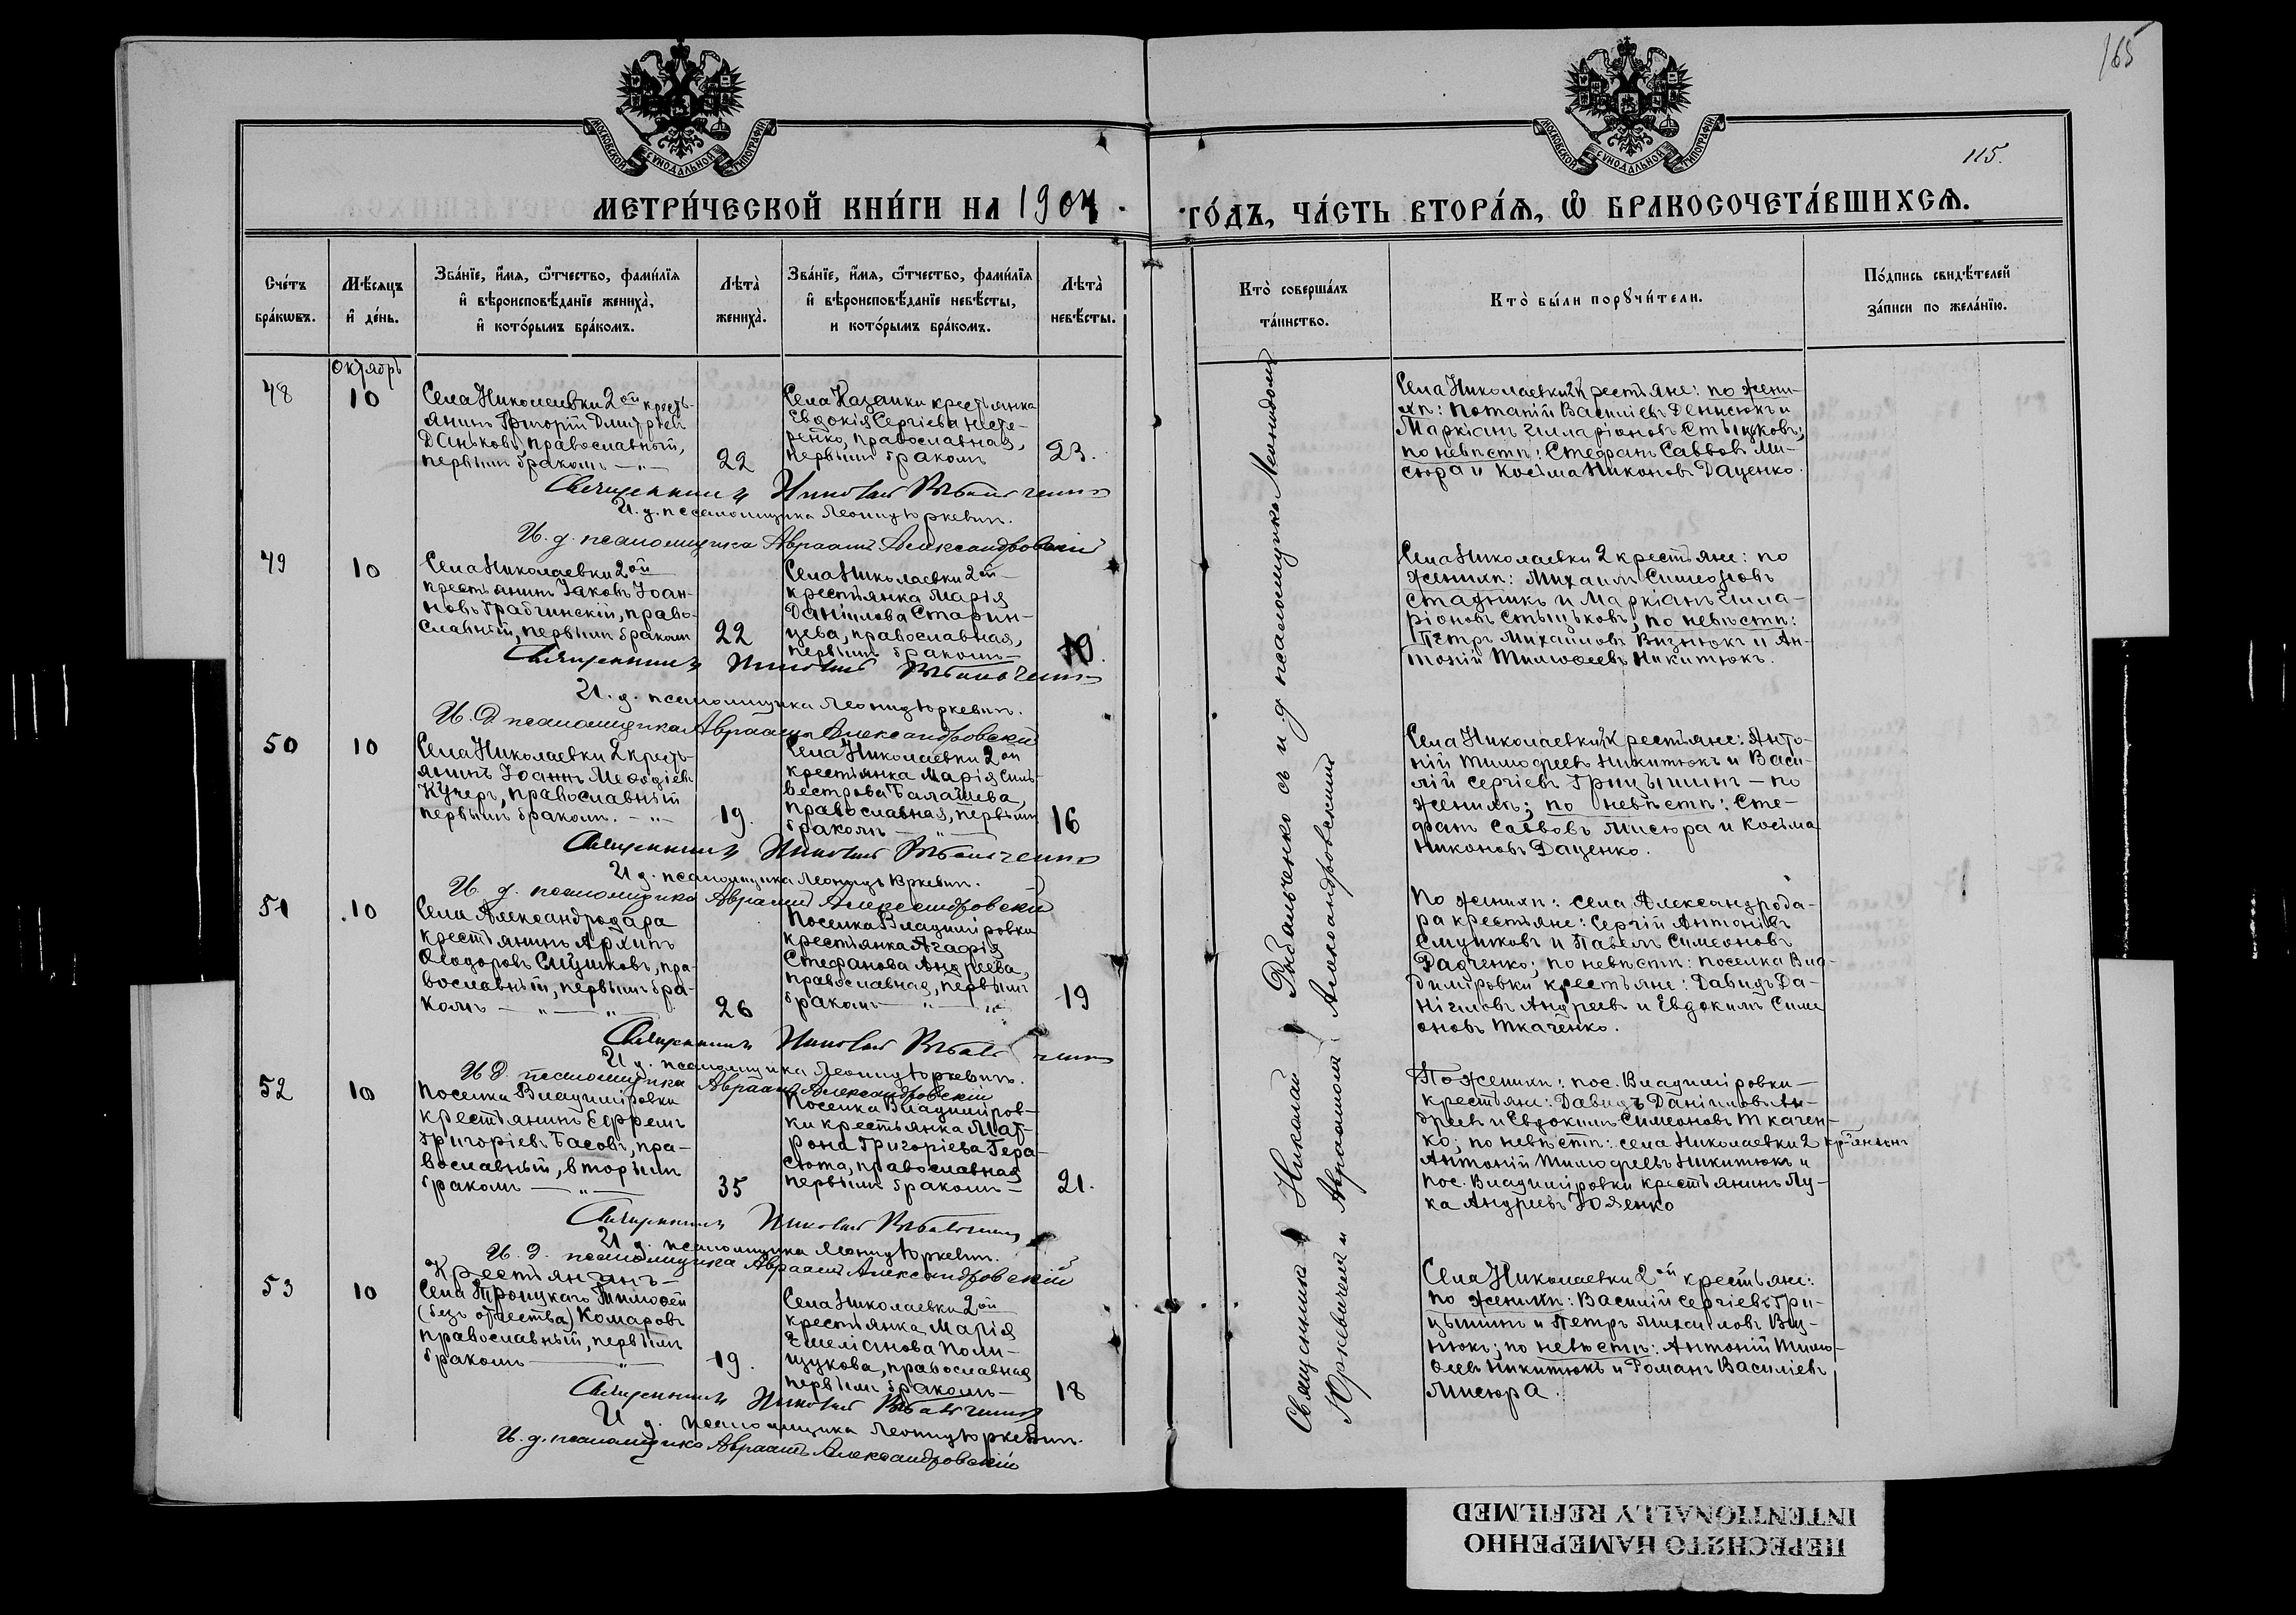 165
115.
МОСКОВСКОЙ СУНОДАЛЬНОЙ ТИПОГРАФІИ
МОСКОВСКОЙ СУНОДАЛЬНОЙ ТИПОГРАФІИ
МЕТРИ́ЧЕСКОЙ КНИ́ГИ НА 1904
ГО́ДЪ, ЧА́СТЬ ВТОРА́Ѧ, Ѽ БРАКОСОЧЕТА́ВШИХСѦ.
Сче́тъ бра́кѡвъ.
Мѣ́сяцъ и҆ де́нь.
Зва́нїе, и҆́мя, ѻ҆́тчество, фами́лїя и҆ вѣроисповѣ́данїе жениха̀, и҆ кото́рымъ бра́комъ.
Лѣта̀ жениха̀.
Зва́нїе, и҆́мя, ѻ҆́тчество, фами́лїя и҆ вѣроисповѣ́данїе невѣ́сты, и кото́рымъ бра́комъ.
Лѣта̀ невѣ́сты.
Кто̀ соверша́лъ та́инство.
Кто̀ бы́ли порꙋчи́тели.
По́дпись свидѣ́телей за́писи по жела́нїю.
Октябрь
48
10
Села Николаевки 2ой кресть-
янинъ Григорій Димитріевъ
Даньковъ, православный,
первымъ бракомъ
22
Села Казанки крестьянка
Евдокія Сергіева Несте-
ренко, православная,
первымъ бракомъ
23.
Села Николаевки 2 крестьяне: по жени-
хѣ: Потапій Василіевъ Денисюкъ и
Маркіанъ Илларіоновъ Стыцковъ;
по невѣстѣ: Стефанъ Саввовъ Ми-
сюра и Косьма Никоновъ Даценко.
Священникъ Николай Рыбальченко
И. д. псаломщика Леонидъ Юркевичъ.
И. д. псаломщика Авраамъ Александровскій
49
10
Села Николаевки 2ой
крестьянинъ Іаковъ Іоан-
новъ Грабчинскій, право-
славный, первымъ бракомъ
22
Села Николаевки 2ой
крестьянка Марія
Даніилова Старин-
цева, православная,
первымъ бракомъ
19.
Села Николаевки 2 крестьяне: по
женихѣ: Михаилъ Симеоновъ
Стадникъ и Маркіанъ Илла-
ріоновъ Стыцковъ; по невѣстѣ:
Петръ Михаиловъ Визнюкъ и Ан-
тоній Тимоѳеевъ Никитюкъ.
Священникъ Николай Рыбальченко
И. д. псаломщика Леонидъ Юркевичъ.
И. д. псаломщика Авраамъ Александровскій
50
10
Села Николаевки 2 кресть-
янинъ Іоаннъ Меѳодіевъ
Кучеръ, православный
первымъ бракомъ.
19.
Села Николаевки 2ой
крестьянка Марія Силь-
вестрова Балашева,
православная, первымъ
бракомъ
16
Села Николаевки 2 крестьяне: Анто-
ній Тимоѳеевъ Никитюкъ и Васи-
лій Сергіевъ Грицышинъ – по
женихѣ; по невѣстѣ: Сте-
фанъ Саввовъ Мисюра и Косьма
Никоновъ Даценко.
Священникъ Николай Рыбальченко
И. д. псаломщика Леонидъ Юркевичъ.
И. д. псаломщика Авраамъ Александровскій
51
10
Села Александродара
крестьянинъ Архипъ
Ѳеодоровъ Слушковъ, пра-
вославный, первымъ бра-
комъ
26
Поселка Владиміровки
крестьянка Агафія
Стефанова Андреева,
православная, первымъ
бракомъ
19
По женихѣ: села Александрода-
ра крестьяне: Сергій Антоніевъ
Слушковъ и Павелъ Симеоновъ
Радченко; по невѣстѣ: поселка Вла-
диміровки крестьяне: Давидъ Да-
ніиловъ Андреевъ и Евдокимъ Симе
оновъ Ткаченко.
Священникъ Николай Рыбальченко
И. д. псаломщика Леонидъ Юркевичъ.
И. д. псаломщика Авраамъ Александровскій
52
10
Поселка Владиміровки
крестьянинъ Ефремъ
Григоріевъ Басовъ, пра-
вославный, вторымъ
бракомъ
35
Поселка Владиміров-
ки крестьянка Мат-
рона Григоріева Гера-
сюта, православная
первымъ бракомъ
21.
По женихѣ: пос. Владиміровки
крестьяне: Давидъ Даніиловъ Ан-
дреевъ и Евдокимъ Симеоновъ Ткачен-
ко; по невѣстѣ: села Николаевки 2 кр-янинъ
Антоній Тимоѳеевъ Никитюкъ и
пос. Владиміровки крестьянинъ Лу-
ка Андреевъ
Священникъ Николай Рыбальченко
И. д. псаломщика Леонидъ Юркевичъ.
И. д. псаломщика Авраамъ Александровскій
53
10
Крестьянинъ
Села Троицкаго Тимоѳей
(безъ отчества) Комаровъ
православный, первымъ
бракомъ
19.
Села Николаевки 2ой
крестьянка Марія
Емеліанова Поли-
щукова, православная
первымъ бракомъ
18
Села Николаевки 2ой крестьяне:
по женихѣ: Василій Сергіевъ Гри-
цышинъ и Петръ Михаиловъ Виз-
нюкъ; по невѣстѣ: Антоній Тимо-
ѳеевъ Никитюкъ и Романъ Василіевъ
Мисюра.
Священникъ Николай Рыбальченко
И. д. псаломщика Леонидъ Юркевичъ.
И. д. псаломщика Авраамъ Александровскій
Священникъ Николай Рыбальченко съ и. д. псаломщика Леонидомъ
Юркевичемъ и Авраамомъ Александровскимъ
ПЕРЕСНЯТО НАМЕРЕННО
INTENTIONALLY REFILMED